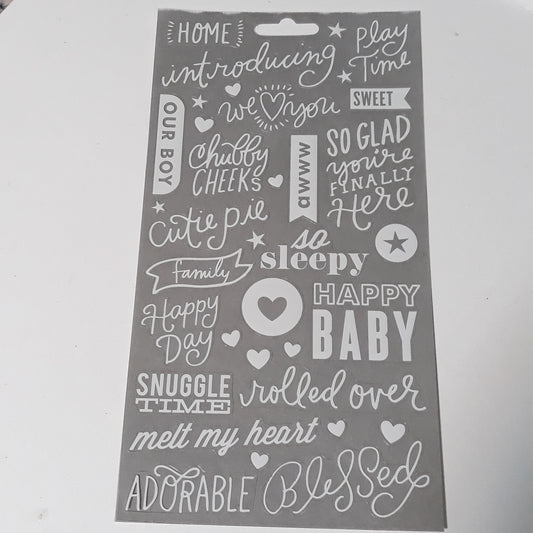 HOME
Play
Time
introducing
we you
SWEET
OUR BOY
Chubby
CHEEKS
awww
SO GLAD
you're
FINALLY
Here
cutie pie
so
sleepy
family
Happy
Day
HAPPY
BABY
SNUGGLE
TIME
rolled over
melt my heart
ADORABLE
Blessed